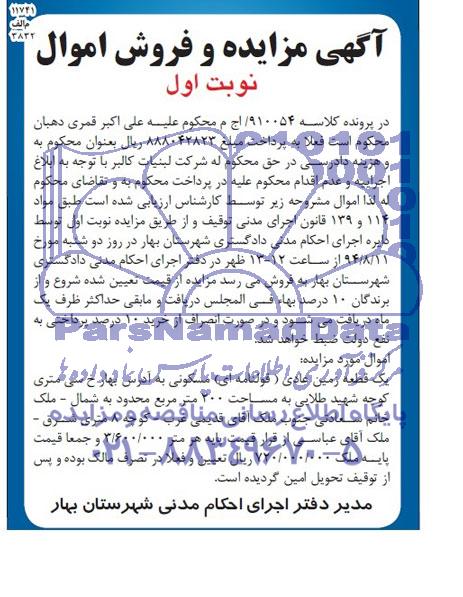 ۱۱۷۴۱
م الف
۳۸۳۲
آگهی مزایده و فروش اموال
نوبت اول
در پرونده کلاسه ۹۱۰۰۵۴/ اج م محکوم علیه علی اکبر قمری دهبان
محکوم است فعلا به پرداخت مبلغ ۸۸۸۰۴۲۸۲۳ ریال بعنوان محکوم به
و هزینه دادرسی در حق محکوم له شرکت لبنیات کالبر با توجه به ابلاغ
اجراییه و عدم اقدام محکوم علیه در پرداخت محکوم به و تقاضای محکوم
له لذا اموال مشروحه زیر توسط کارشناس ارزیابی شده است طبق مواد
۱۱۴ و ۱۳۹ قانون اجرای مدنی توقیف و از طریق مزایده نوبت اول توسط
دایره اجرای احکام مدنی دادگستری شهرستان بهار در روز دو شنبه مورخ
۹۴/۸/۱۱ از ساعت ۱۲-۱۳ ظهر در دفتر اجرای احکام مدنی دادگستری
شهرستان بهار به فروش می رسد مزایده از قیمت تعیین شده شروع و از
برندگان ۱۰ درصد بهاء فی المجلس دریافت و مابقی حداکثر ظرف یک
ماه دریافت می شود و در صورت انصراف از خرید ۱۰ درصد پرداختی به
نفع دولت ضبط خواهد شد.
اموال مورد مزایده:
یک قطعه زمین عادی ( قولنامه ای) مسکونی به آدرس بهار خ سی متری
کوچه شهید طلایی به مساحت ۲۰۰ متر مربع محدود به شمال - ملک
خانم سعادتی جنوب ملک آقای قدیمی غرب - کوچه ۸ متری شرق -
ملک آقای عباسی از قرار قیمت پایه هر متر ۳/۶۰۰/۰۰۰ و جمعا قیمت
پایه ملک ۷۲۰/۰۰۰/۰۰۰ ریال تعیین و فعلا در تصرف مالک بوده و پس
از توقیف تحویل امین گردیده است.
مدیر دفتر اجرای احکام مدنی شهرستان بهار
ParsNamadData
پایگاه اطلاع رسانی مناقصه و مزایده
۰۲۱-۸۸۳۴۹۶۷۰-۵